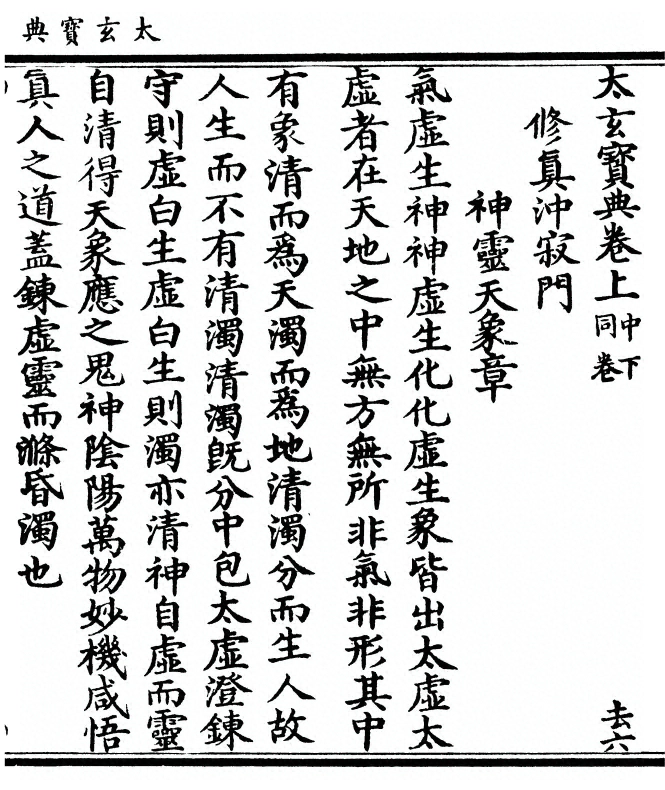 太玄寶典
太玄寶典卷上中下同卷 去六
修真沖寂門
神靈天象章
氣虛生神神虛生化化虛生象皆出太虛太
虛者在天地之中無方無所非氣非形其中
有象清而為天濁而為地清濁分而生人故
人生而不有清濁清濁既分中包太虛澄鍊
守則虛白生虛白生則濁亦清神自虛而靈
自清得天象應之鬼神陰陽萬物妙機咸悟
真人之道蓋鍊虛靈而滌昏濁也